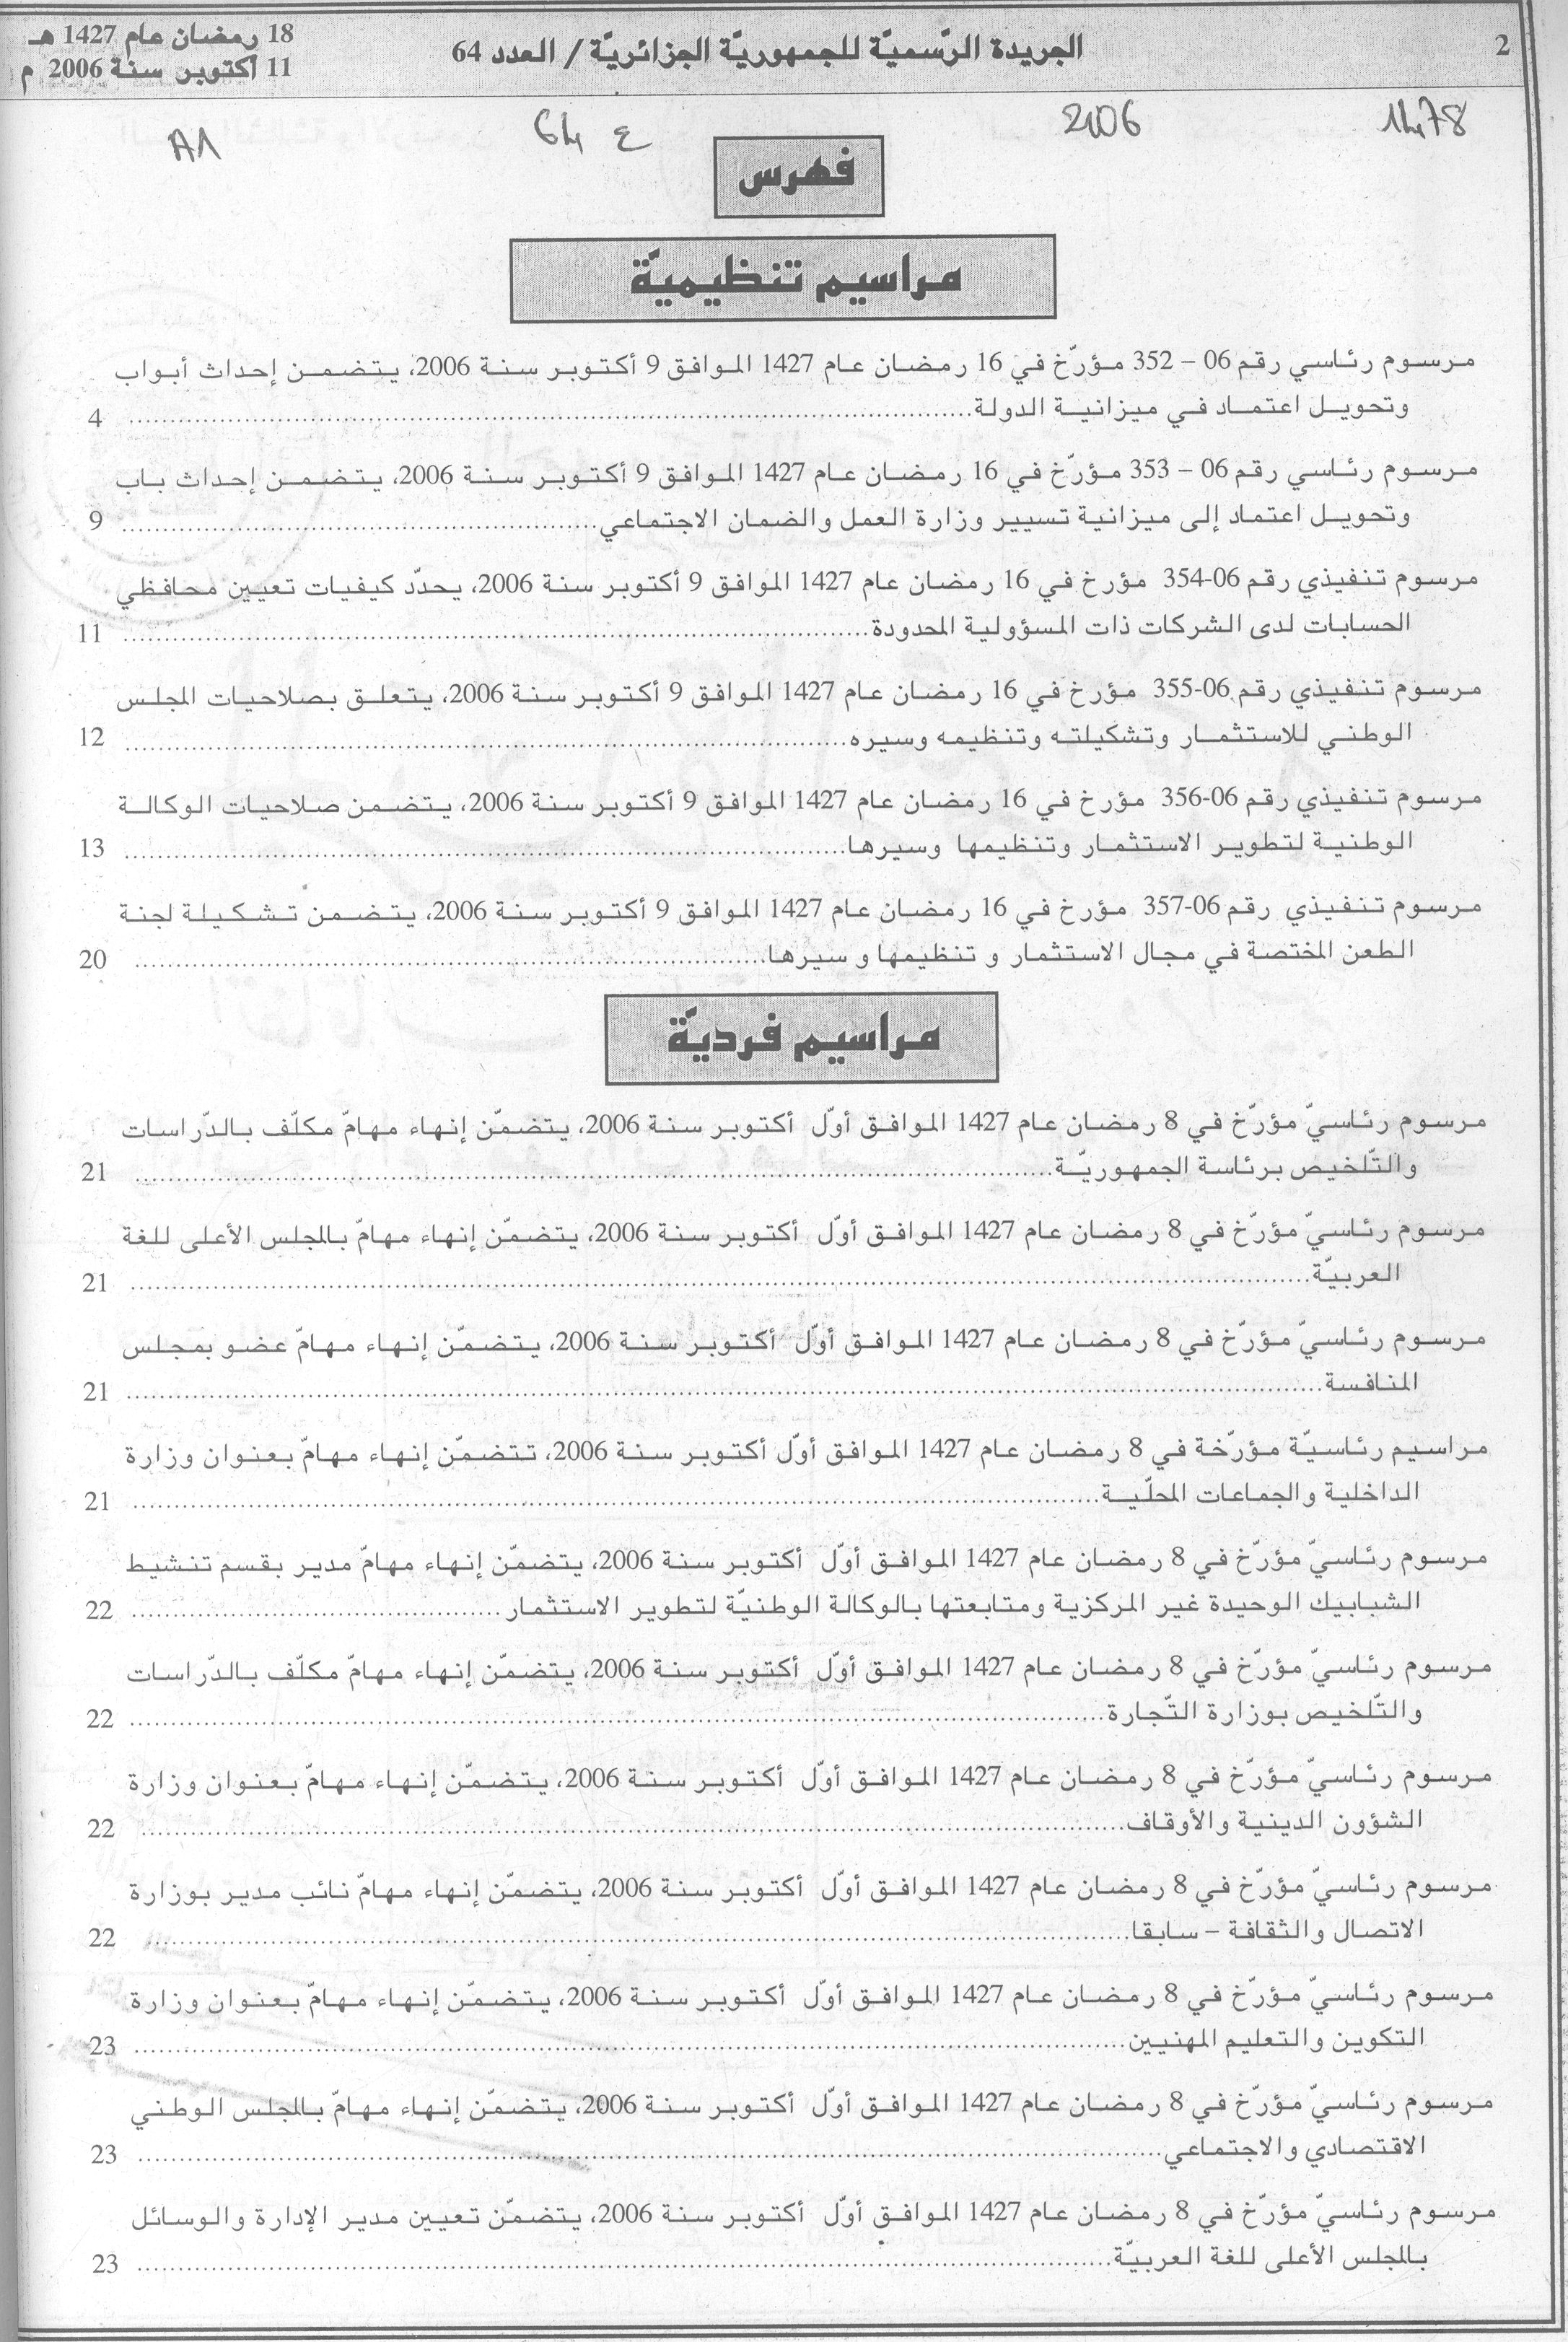 2
الجريدة الرّسميّة للجمهوريّة الجزائريّة / العدد 64
18 رمضان عام 1427 هـ
11 أكتوبر سنة 2006 م
1478
2006
64 ع
A1
فهرس
مراسيم تنظيميّة
مرسوم رئاسي رقم 06 – 352 مؤرّخ في 16 رمضان عام 1427 الموافق 9 أكتوبر سنة 2006، يتضمن إحداث أبواب
وتحويل اعتماد في ميزانية الدولة 4
مرسوم رئاسي رقم 06 – 353 مؤرّخ في 16 رمضان عام 1427 الموافق 9 أكتوبر سنة 2006، يتضمن إحداث باب
وتحويل اعتماد إلى ميزانية تسيير وزارة العمل والضمان الاجتماعي 9
مرسوم تنفيذي رقم 06-354 مؤرخ في 16 رمضان عام 1427 الموافق 9 أكتوبر سنة 2006، يحدّد كيفيات تعيين محافظي
الحسابات لدى الشركات ذات المسؤولية المحدودة 11
مرسوم تنفيذي رقم 06-355 مؤرخ في 16 رمضان عام 1427 الموافق 9 أكتوبر سنة 2006، يتعلق بصلاحيات المجلس
الوطني للاستثمار وتشكيلته وتنظيمه وسيره 12
مرسوم تنفيذي رقم 06-356 مؤرخ في 16 رمضان عام 1427 الموافق 9 أكتوبر سنة 2006، يتضمن صلاحيات الوكالة
الوطنية لتطوير الاستثمار وتنظيمها وسيرها 13
مرسوم تنفيذي رقم 06-357 مؤرخ في 16 رمضان عام 1427 الموافق 9 أكتوبر سنة 2006، يتضمن تشكيلة لجنة
الطعن المختصة في مجال الاستثمار و تنظيمها و سيرها 20
مراسيم فرديّة
مرسوم رئاسيّ مؤرّخ في 8 رمضان عام 1427 الموافق أوّل أكتوبر سنة 2006، يتضمّن إنهاء مهامّ مكلّف بالدّراسات
والتّلخيص برئاسة الجمهوريّة 21
مرسوم رئاسيّ مؤرّخ في 8 رمضان عام 1427 الموافق أوّل أكتوبر سنة 2006، يتضمّن إنهاء مهامّ بالمجلس الأعلى للغة
العربيّة 21
مرسوم رئاسيّ مؤرّخ في 8 رمضان عام 1427 الموافق أوّل أكتوبر سنة 2006، يتضمّن إنهاء مهامّ عضو بمجلس
المنافسة 21
مراسيم رئاسيّة مؤرّخة في 8 رمضان عام 1427 الموافق أوّل أكتوبر سنة 2006، تتضمّن إنهاء مهامّ بعنوان وزارة
الداخلية والجماعات المحلّيـة 21
مرسوم رئاسيّ مؤرّخ في 8 رمضان عام 1427 الموافق أوّل أكتوبر سنة 2006، يتضمّن إنهاء مهامّ مدير بقسم تنشيط
الشبابيك الوحيدة غير المركزية ومتابعتها بالوكالة الوطنيّة لتطوير الاستثمار 22
مرسوم رئاسيّ مؤرّخ في 8 رمضان عام 1427 الموافق أوّل أكتوبر سنة 2006، يتضمّن إنهاء مهامّ مكلّف بالدّراسات
والتّلخيص بوزارة التّجارة 22
مرسوم رئاسيّ مؤرّخ في 8 رمضان عام 1427 الموافق أوّل أكتوبر سنة 2006، يتضمّن إنهاء مهامّ بعنوان وزارة
الشؤون الدينية والأوقاف 22
مرسوم رئاسيّ مؤرّخ في 8 رمضان عام 1427 الموافق أوّل أكتوبر سنة 2006، يتضمّن إنهاء مهامّ نائب مدير بوزارة
الاتصال والثقافة – سابقا 22
مرسوم رئاسيّ مؤرّخ في 8 رمضان عام 1427 الموافق أوّل أكتوبر سنة 2006، يتضمّن إنهاء مهامّ بعنوان وزارة
التكوين والتعليم المهنيين 23
مرسوم رئاسيّ مؤرّخ في 8 رمضان عام 1427 الموافق أوّل أكتوبر سنة 2006، يتضمّن إنهاء مهامّ بالمجلس الوطني
الاقتصادي والاجتماعي 23
مرسوم رئاسيّ مؤرّخ في 8 رمضان عام 1427 الموافق أوّل أكتوبر سنة 2006، يتضمّن تعيين مدير الإدارة والوسائل
بالمجلس الأعلى للغة العربيّة 23